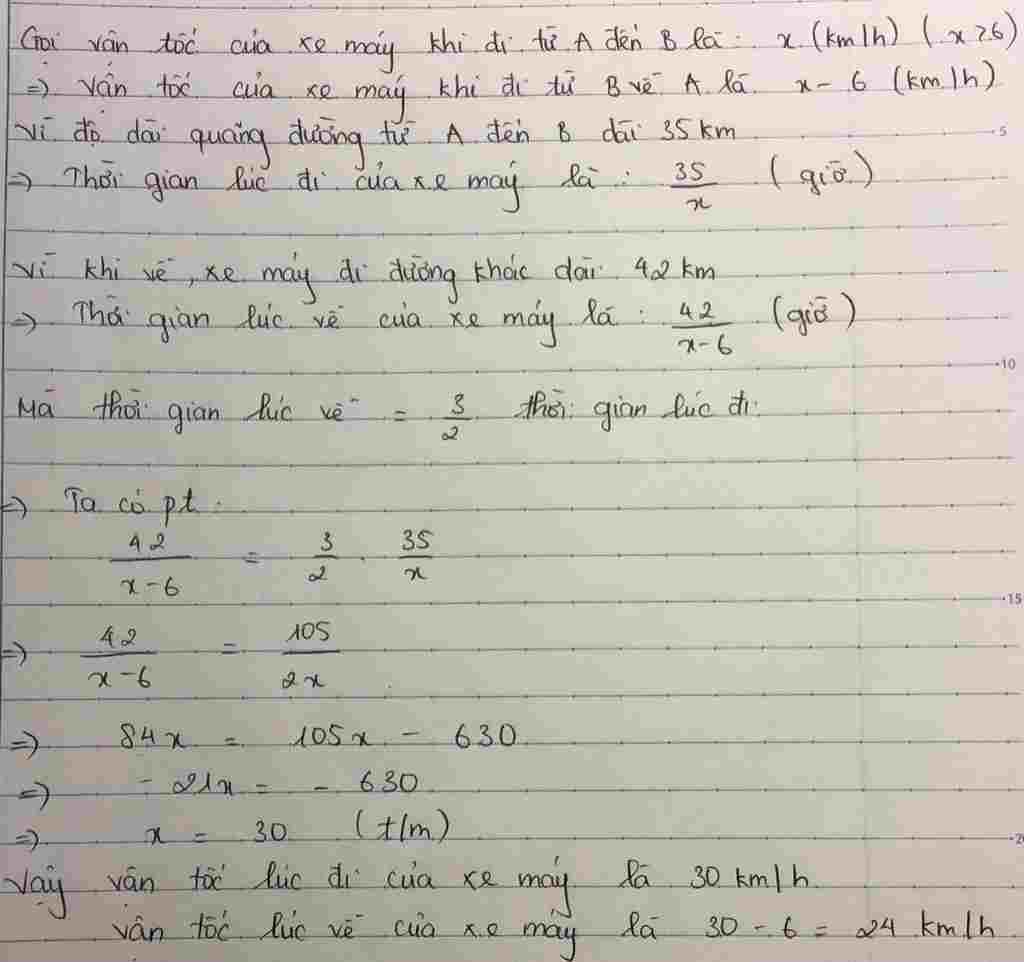 Gọi vận tốc của xe máy khi đi từ A đến B là: x (km/h) (x>6)
=> Vận tốc của xe máy khi đi từ B về A là x - 6 (km/h)
Vì độ dài quãng đường từ A đến B dài 35 km
5
=> Thời gian lúc đi của xe máy là : 35/x (giờ)
Vì khi về, xe máy đi đường khác dài 42 km
=> Thời gian lúc về của xe máy là : 42/(x-6) (giờ)
10
Mà thời gian lúc về = 3/2 thời gian lúc đi.
=> Ta có pt :
42/(x-6) = 3/2 . 35/x
15
=> 42/(x-6) = 105/2x
=> 84x = 105x - 630
=> - 21x = - 630
=> x = 30 (t/m)
Vậy vận tốc lúc đi của xe máy là 30 km/h.
vận tốc lúc về của xe máy là 30 - 6 = 24 km/h